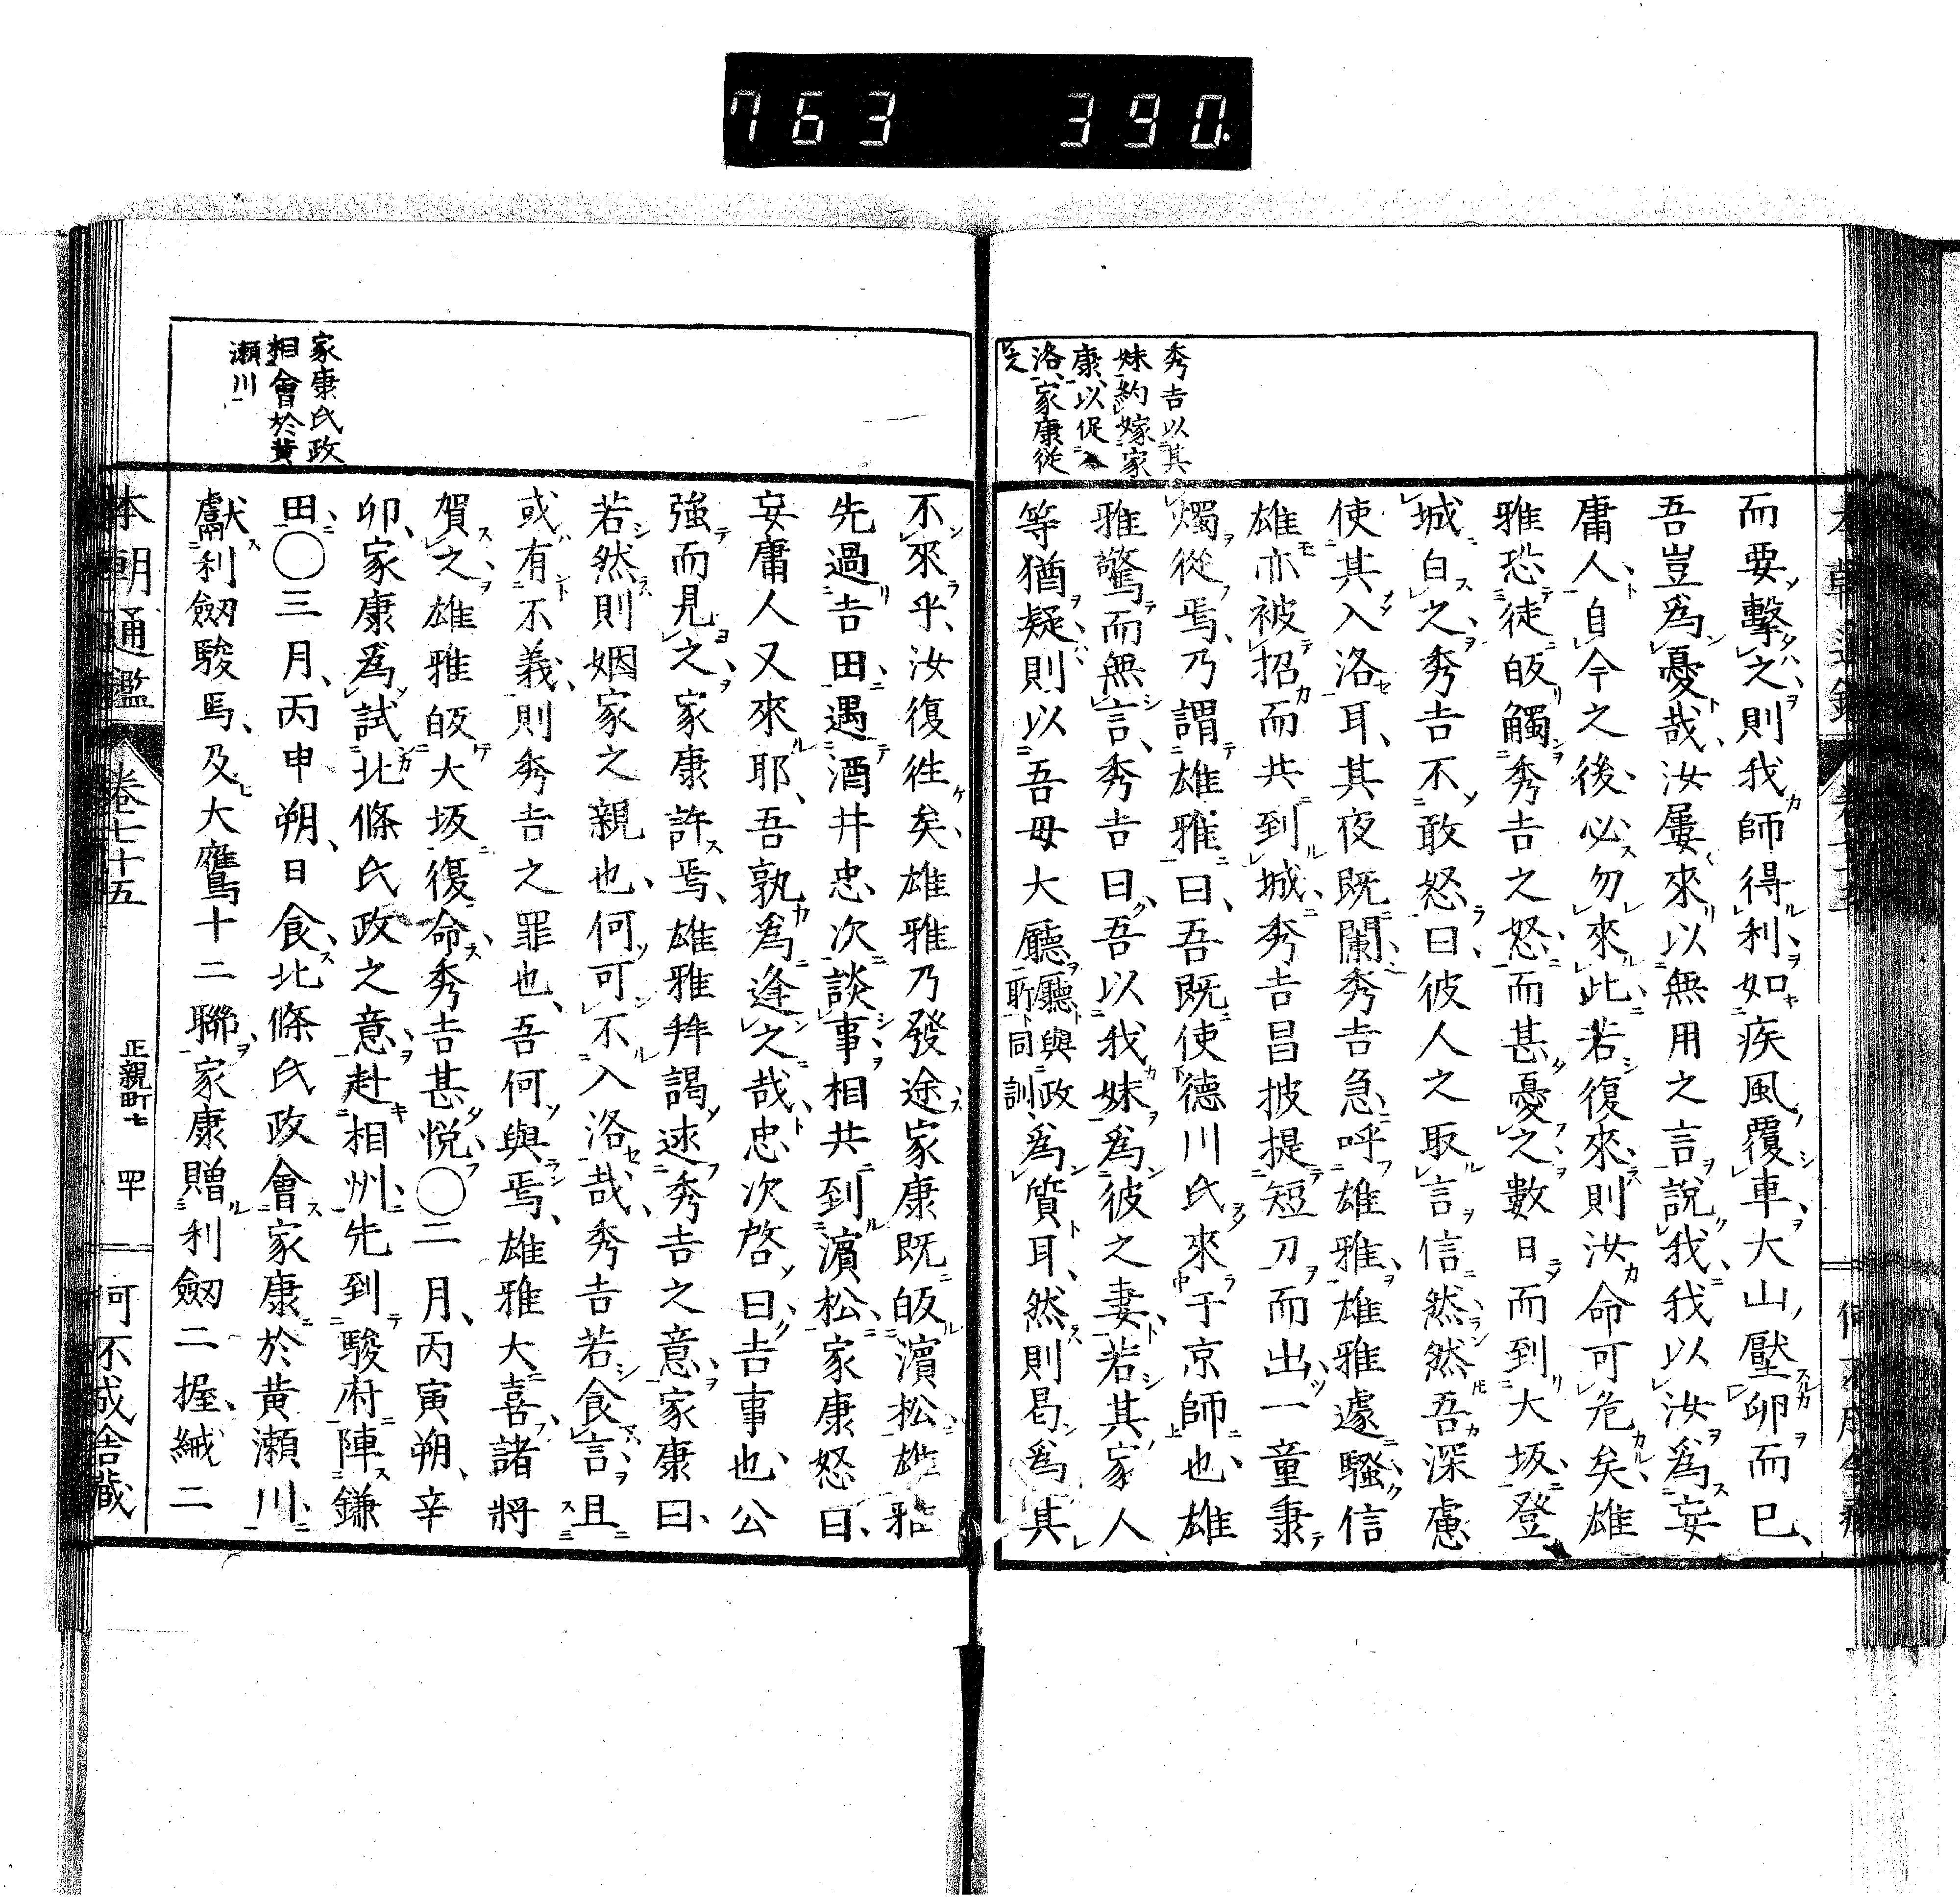 763 390.
秀吉以其
妹約嫁家
康、以促入
洛、家康從
之
而要擊之則我師得利如疾風覆車、大山壓卵而已、
吾豈爲憂哉、汝屢來以無用之言說我、我以汝爲妄
庸人、自今之後、必勿來此、若復來則汝命可危矣、雄
雅恐徒皈觸秀吉之怒、而甚憂之數日而到大坂、登
城白之、秀吉不敢怒、曰彼人之取言信然、然吾深慮
使其入洛耳、其夜既闌、秀吉急呼雄雅、雄雅遽騷、信
雄亦被招而共到城、秀吉昌披提短刀而出、一童秉
燭從焉、乃謂雄雅曰、吾既使德川氏來于京師也、雄
雅驚而無言、秀吉曰、吾以我妹爲彼之妻、若其家人
等猶疑則以吾母大廳廳與政
所同訓爲質耳、然則曷爲其
不來乎、汝復徃矣、雄雅乃發途、家康既皈濵松、雄雅
先過吉田、遇酒井忠次談事、相共到濵松、家康怒曰、
妄庸人又來耶、吾孰爲逢之哉、忠次啓曰、吉事也、公
強而見之、家康許焉、雄雅拜謁、述秀吉之意、家康曰、
若然則姻家之親也、何可不入洛哉、秀吉若食言、且
或有不義、則秀吉之罪也、吾何與焉、雄雅大喜、諸將
賀之、雄雅皈大坂復命、秀吉甚悅、〇二月、丙寅朔、辛
卯、家康爲試北條氏政之意、赴相州、先到駿府陣鎌
田、〇三月、丙申朔、日食、北條氏政會家康於黃瀨川、
獻利劔駿馬、及大鷹十二聯、家康贈利劔二握、緘二
家康氏政
相會於黃
瀨川
本朝通鑑 卷七十五 正親町七 罕 何不成舍藏